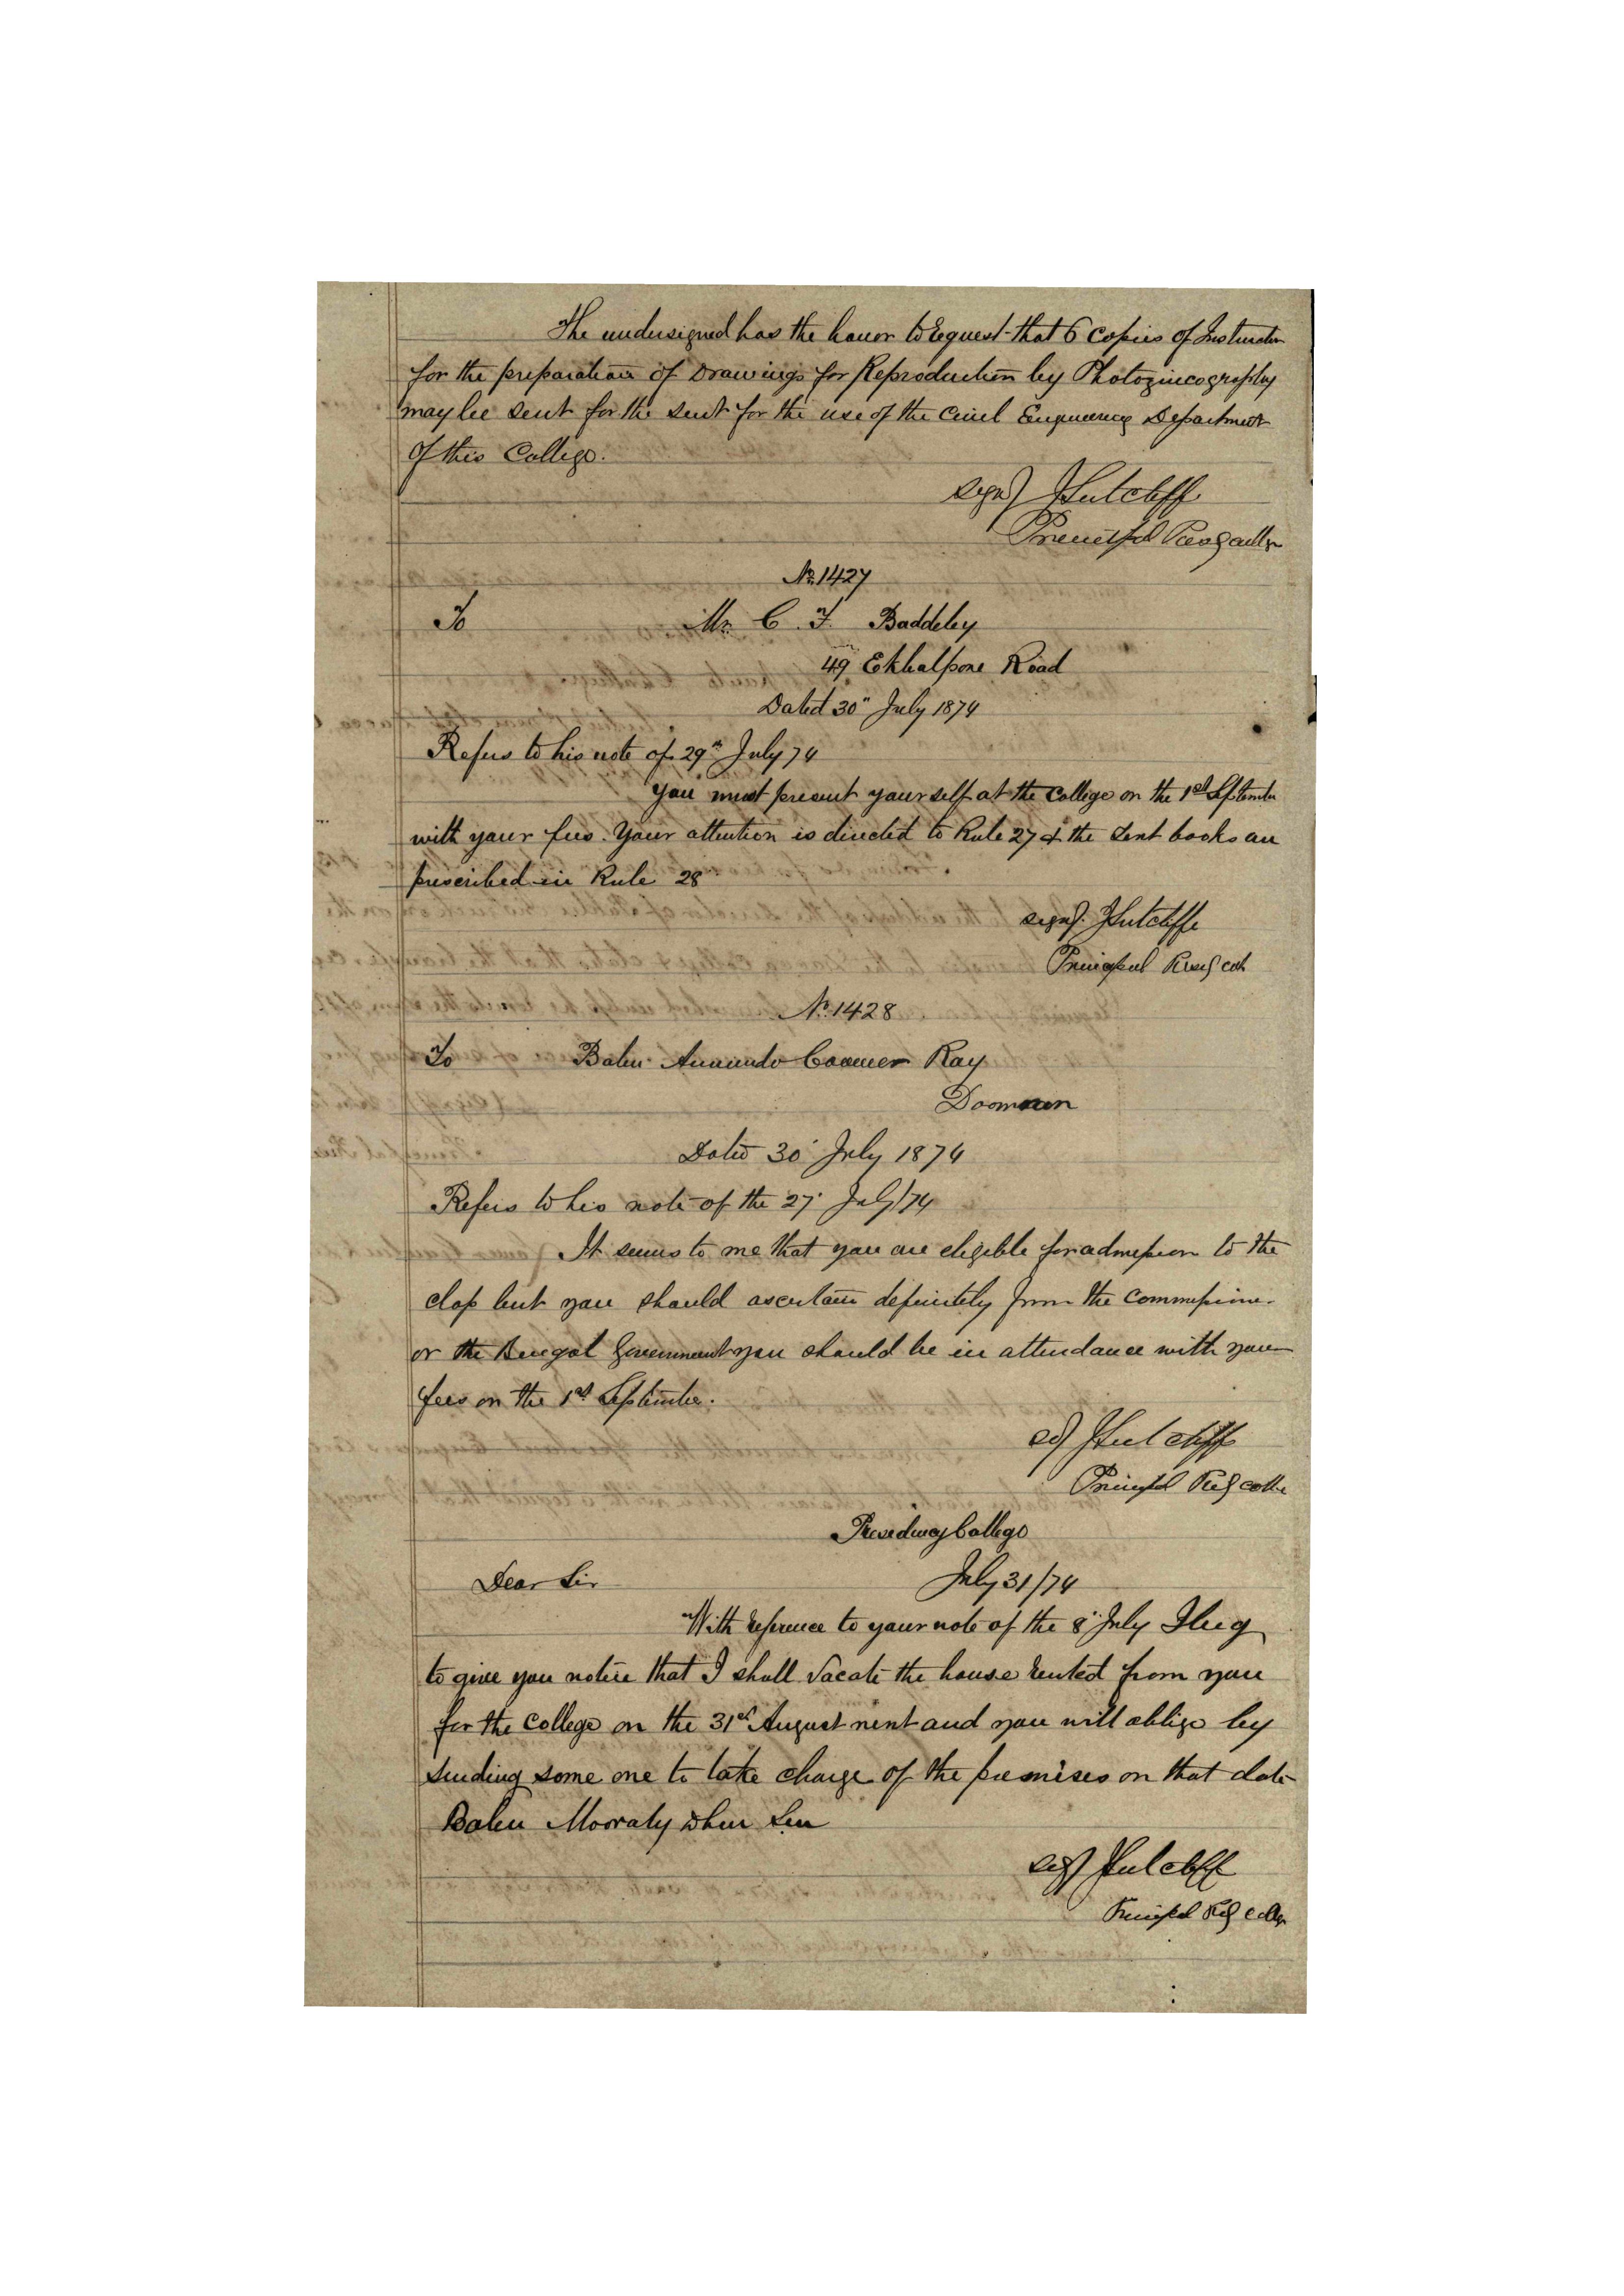 The undersigned has the honor to request that 6 Copies of Instruction
for the preparation of Drawings for Reproduction by Photozincography
may be sent for the sent for the use of the Civil Engineering Department
of this College.
signd) J Sutcliff
Principal Presy College
No. 1427
To Mr. C. F. Baddeley
49 Road
Dated 30th July 1874
Refers to his note of 29th July 74
You must present yourself at the College on the 1st September
with your fees. Your attention is directed to Rule 27 & the text books are
prescribed in Rule 28
signd. J Sutcliffe
Principal Presy col
No. 1428
To Babu Anundo Coomer Ray
Dated 30 July 1874
Refers to his note of the 27 July/74
It seems to me that you are eligible for admission to the
class but you should ascertain definitely from the
or the Bengal Government you should be in attendance with your
fees on the 1st September.
sd) J Sutcliff
Principal Presy colle
Presidency College
Dear Sir July 31/74
With reference to your note of the 8 July I beg
to give you notice that I shall vacate the house rented from you
for the College on the 31st August next and you will oblige by
sending some one to take charge of the premises on that date
Babu Mooraly Dhur Sen
sigd) J Sutcliff
Principal Presy College